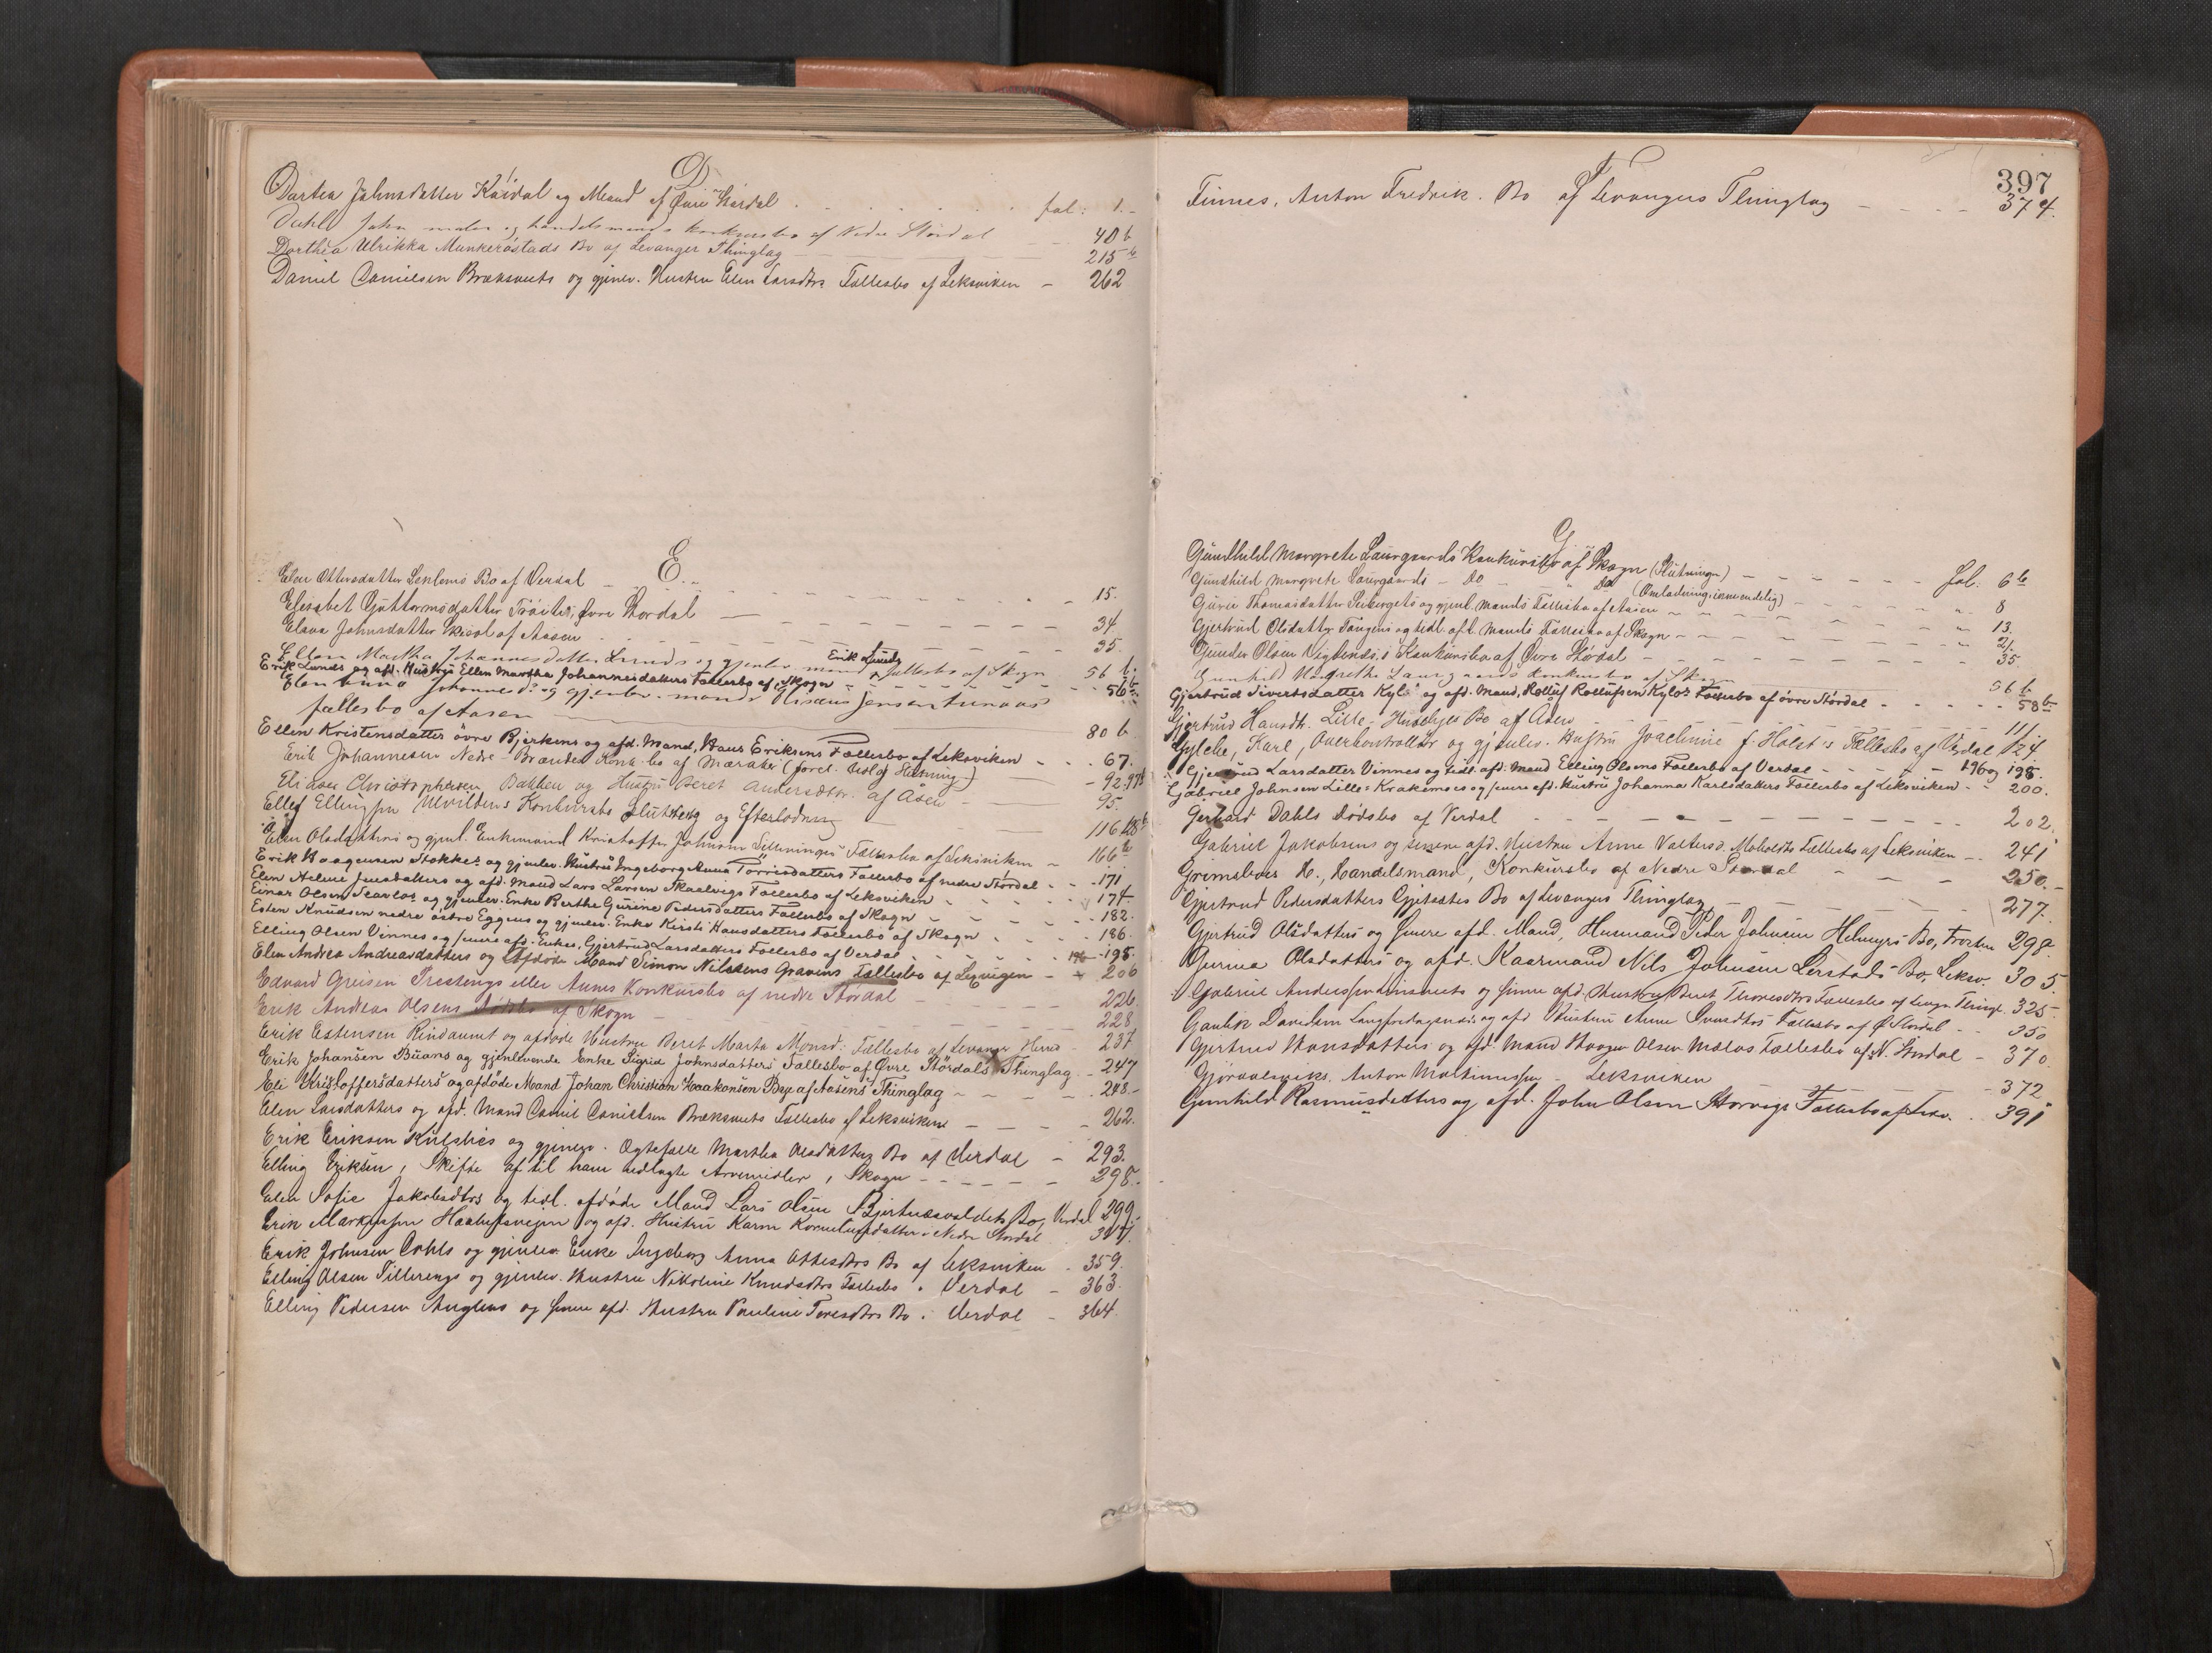 D
Dortea Johnsdatter Kaidal og Mand af Øvre Størdal fol: 1.
Dahls John maler og handelsmands konkursbo af Nedre Størdal 40 b
Dorthea Ulrikka Munkerøstads Bo af Levanger Thinglag 215 b
Daniel Danielsen Bræksveets og gjenlev. Hustru Elen Larsdtrs Fællesbo af Leksviken 262
E.
Elen Ottersdatter Leklems Bo af Verdal 15.
Elisabet Guttormsdatter Trøite, Øvre Stordal 34
Elava Johnsdatter Skjeol af Aasen 35.
Ellen Martha Johannesdatter Lunds og gjenlev mand Erik Lunds fællesbo af Skogn 56 b.
Erik Lunds og afd. Hustru Ellen Martha Johannesdatters Fællesbo af Skogn 56 b
Elen Anna Johannesd. og gjenlev. mands Jensen
fællesbo af Aasen 80 b
Ellen Kristensdatter övre Bjerkens og afd. Mand, Hans Eriksens Fællesbo af Leksviken 67.
Erik Johannesen Nedre-Brændes Konk.bo af Meraker (foret. Udlg Slutning) 92.97b
Elias Christophersen Bakken og Hustru Beret Andersdtr. af Åsen 95.
Ellef Ellingsen Ulvildens Konkursbo Slutning og Efterlodning 116
Elen Olsdatters og gjenl. Enkemand Kristoffer Johnsens Fællesbo af Leksviken 166 b
Erik Haagensen Stokkes og gjenlev. Hustru Ingeborg Anna Torrisdatters Fællesbo af nedre Stördal 171
Elen Helene Jensdatters og afd. Mand Lars Larsen Skaelvigs Fællesbo af Leksviken 174
Einar Olsen og gjenlev. Enke Berthe Gurine Pedersdatters Fællesbo af Skogn 182.
Esten Knudsen nedre östre Eggens og gjenlev. Enke Kirsti Hansdatters Fællesbo af Skogn 186.
Elling Olsen Vinnes og senere afd. Enkes, Gjertrud Larsdatters Fællesbo af Verdal 196 198.
Elen Andrea Andreasdatters og afdøde Mand Simon Nilssens Gravens Fællesbo af 206
Edvard Greisen eller Aunes Konkursbo af nedre Størdal 226
Erik Andreas Olsens Dødsbo af Skogn 228
Erik Estensen Rindaunet og afdøde Hustru Beret Marta Monsd. Fællesbo af Levanger Herred 237
Erik Johansen Buans og gjenlevende Enke Sigrid Johnsdatters Fællesbo af Øvre Stördals Thinglag 247
Eli Kristoffersdatters og afdöde Mand Johan Christian Haakonsen Bye af Aasens Thinglag 248.
Elen Larsdatters og afd. Mand Daniel Danielsen Bræksveets Fællesbo af Leksviken 262.
Erik Eriksen og gjenlev. Ægtefælle Martha Olsdatters Bo af Verdal 293.
Elling Eriksen, Skifte af til ham udlagte Arvemidler, Skogn 298.
Elen Sofie Jakobsdtrs og tidl. afdøde Mand Lars Olsen Bjertnæsvaldets Bo, Verdal 299.
Erik Markussen og afd. Hustru Karen Korneliusdatter i Nedre Stordal
Erik Johnsen Dahls og gjenlev. Enke Ingeborg Anna Ottesdtrs Bo af Leksviken 359.
Elling Olsen Tillerengs og gjenlev. Hustru Nikoline Knudsdtrs Fællesbo i Verdal 363.
Elling Pedersen og senere afd. Hustru Pauline Toresdtrs Bo i Verdal 364.
397
F
Finnes, Anton Fredrik. Bo af Levangers Thinglag 374.
G
Gunhild Margrete Laurgaards Konkursbo af Skogn (Slutningn) fol. 6 b
Gunhild Margrete Laurgaards Do Do (Omladning: innvendelig) 8
Gurie Thomasdatter og gjenl. Mands Fællesbo af Aasen 13.
Gjertrud Olsdatter Tangens og tidl. afd. Mands Fællesbo af Skogn 21.
Gunder Olsen Viglunds Konkursbo af Øvre Stördal 35.
Gunhild Margrethe Laurgaards Konkursbo af Skogn 56 b
Gjertrud Sivertsdatter Kylo og afd. Mand, Rolluf Rollufsen Kylos Fællesbo af övre Stördal 58 b
Gjertrud Hansdtr. Lille-Husbyes Bo af Åsen 111
Gylche, Karl, Overkontrollør og gjenlev. Hustru Joachmine f. Holst's Fællesbo af Verdal 124
Gjertrud Larsdatter Vinnes og tidl. afd. Mand Elling Olsens Fællesbo af Verdal 196 og 198.
Gabriel Johnsen Lille-Krakemoes og senere afd. Hustru Johanna Karlsdatters Fællesbo af Leksviken 200.
Gerhard Dahls Dødsbo af Verdal 202.
Gabriel Jakobsens og senere afd. Hustru Anne Fællesbo af Leksviken 241
H., Handelsmand, Konkursbo af Nedre Stordal 250.
Gjertrud Pedersdatters Bo af Levangers Thinglag 277.
Gjertrud Olsdatters og senere afd. Mand, Husmand Peder Johnsen Helmyrs Bo, Frosten 298.
Gurine Olsdatters og afd. Kaarmand Nils Johnsen Lerstads Bo, Leksv. 305.
Gabriel Anderssen og senere afd. Hustru Beret Thoresdtrs Fællesbo af Levgr Thingl. 325.
Davidsen og afd Hustru Anne Fællesbo af Ø. Stordal 350
Gjertrud Hansdatters og afd. Mand Haagen Olsen Fællesbo af N. Stordal 370.
Anton Martinussen Leksviken 372
Gunhild Rasmusdatters og afd. John Olsen Storvigs Fællesbo af 391